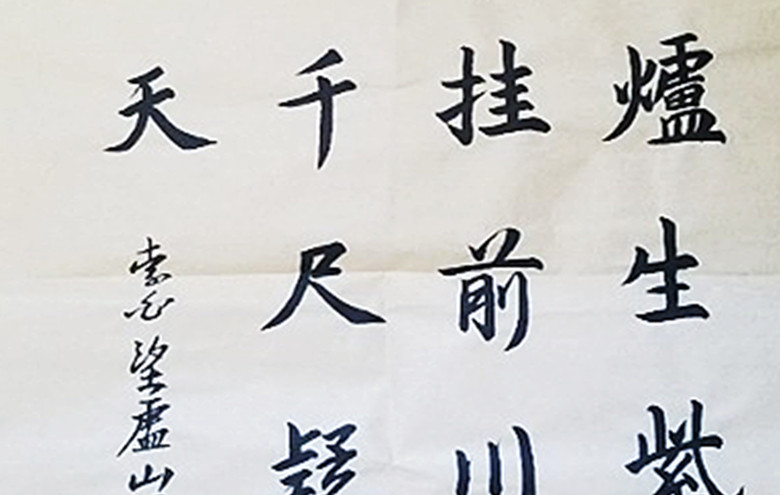 爐生紫
挂前川
千尺疑
天
李白望廬山